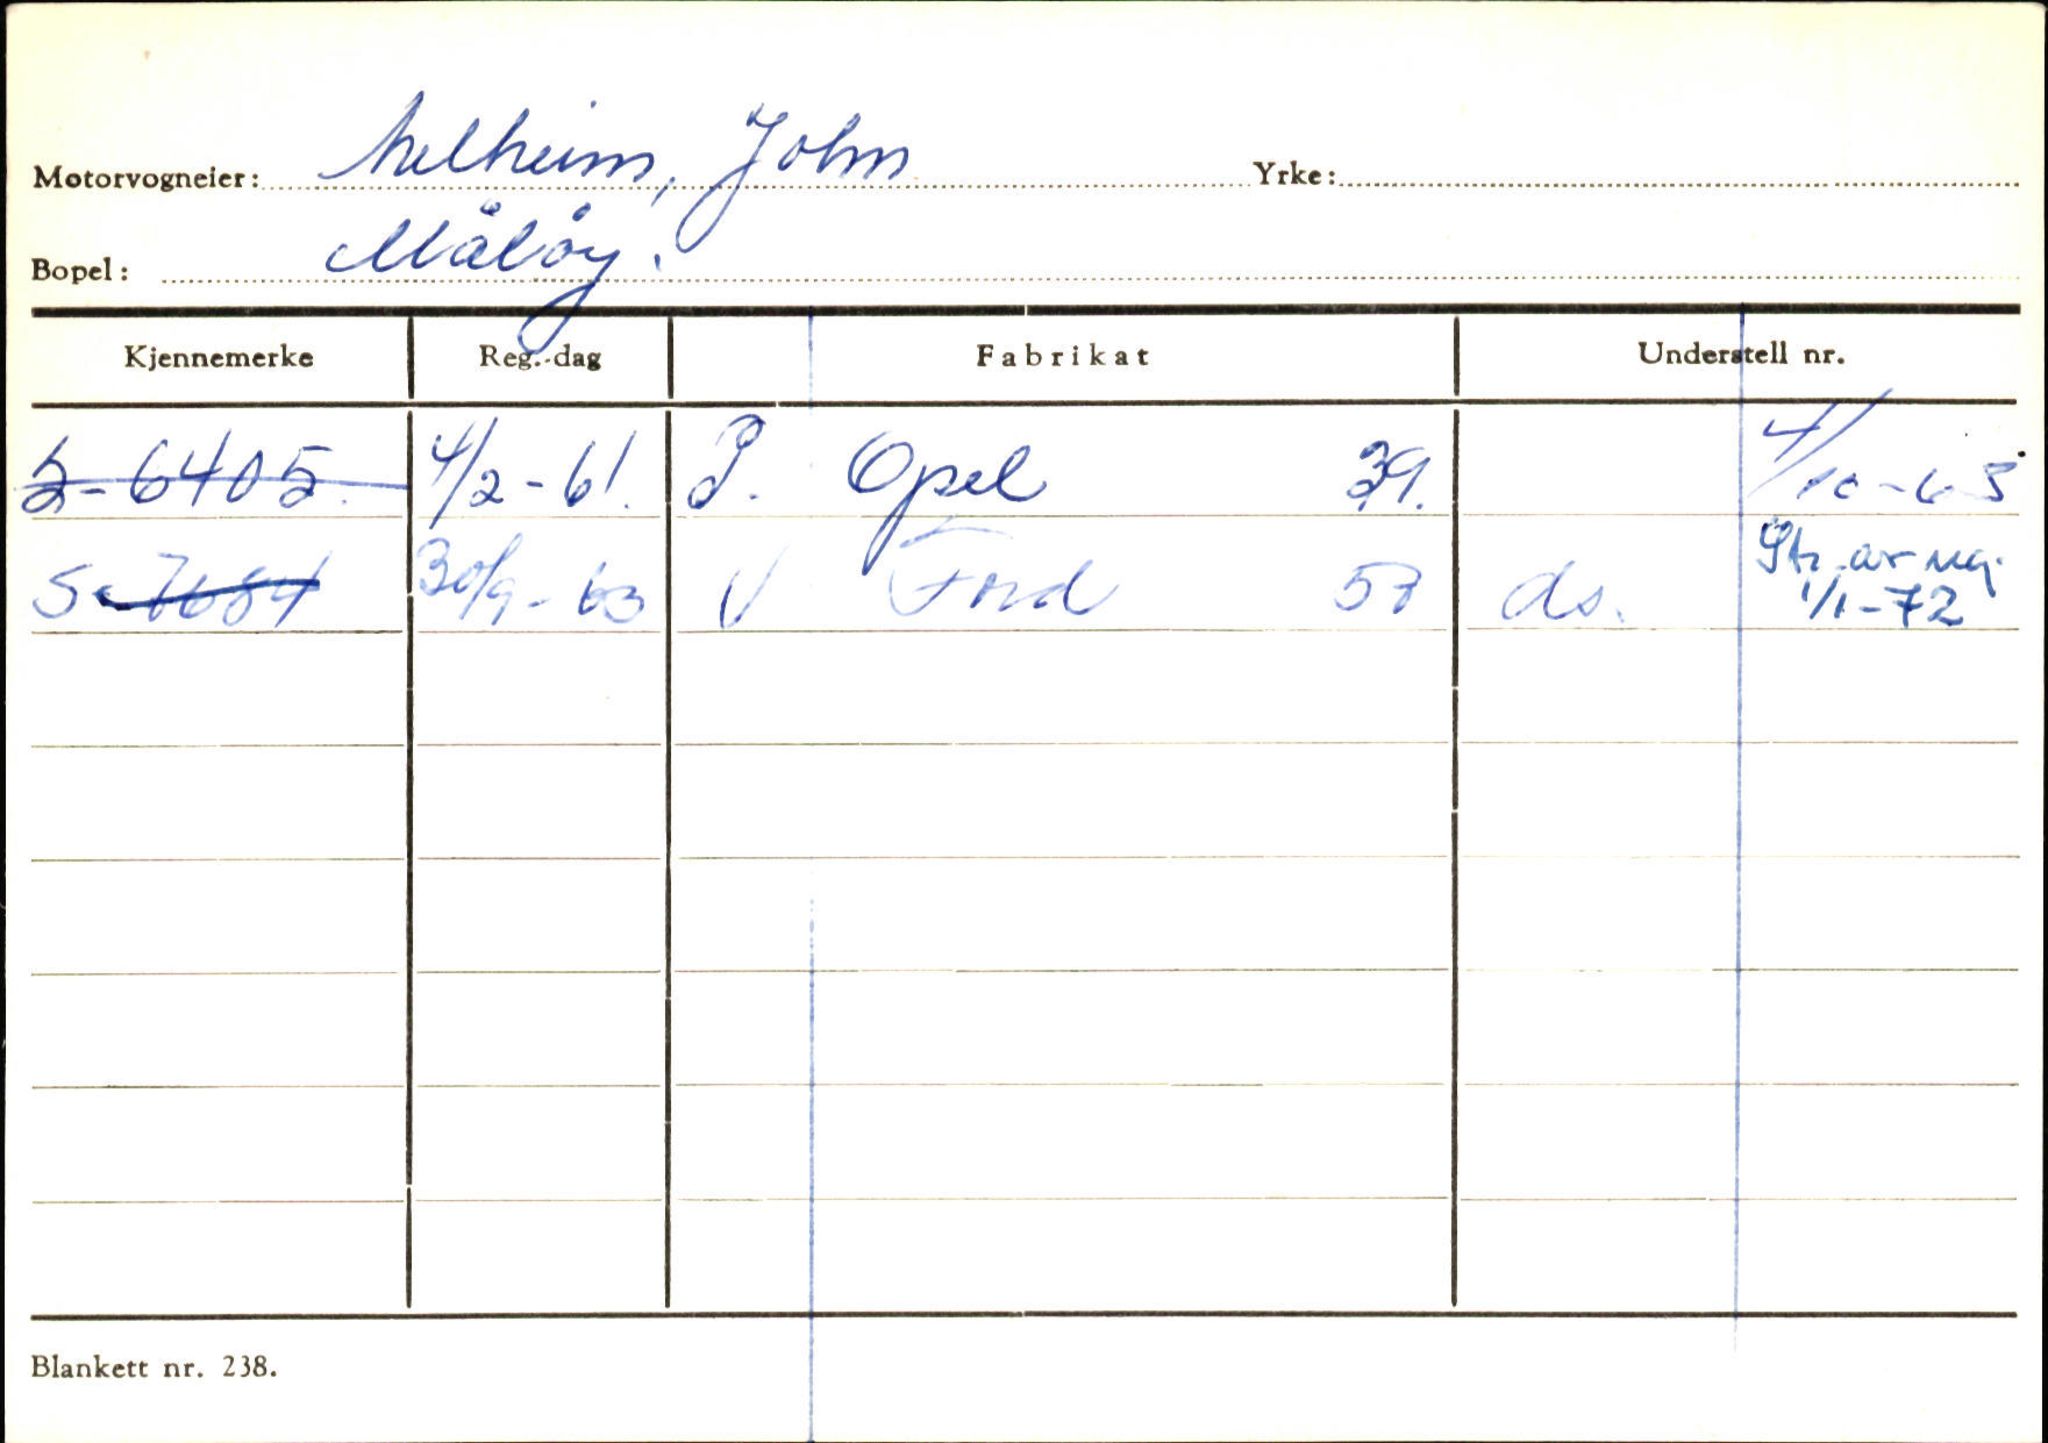 Motorvogneier: Melheim, John Yrke:
Bopel: Måløy.
Kjennemerke Reg.-dag Fabrikat Understell nr.
S-6405. 4/2-61. P. Opel 39. 4/10-63
S-7684 30/9-63 V Ford 53 ds. Str. av reg. 1/1-72
Blankett nr. 238.